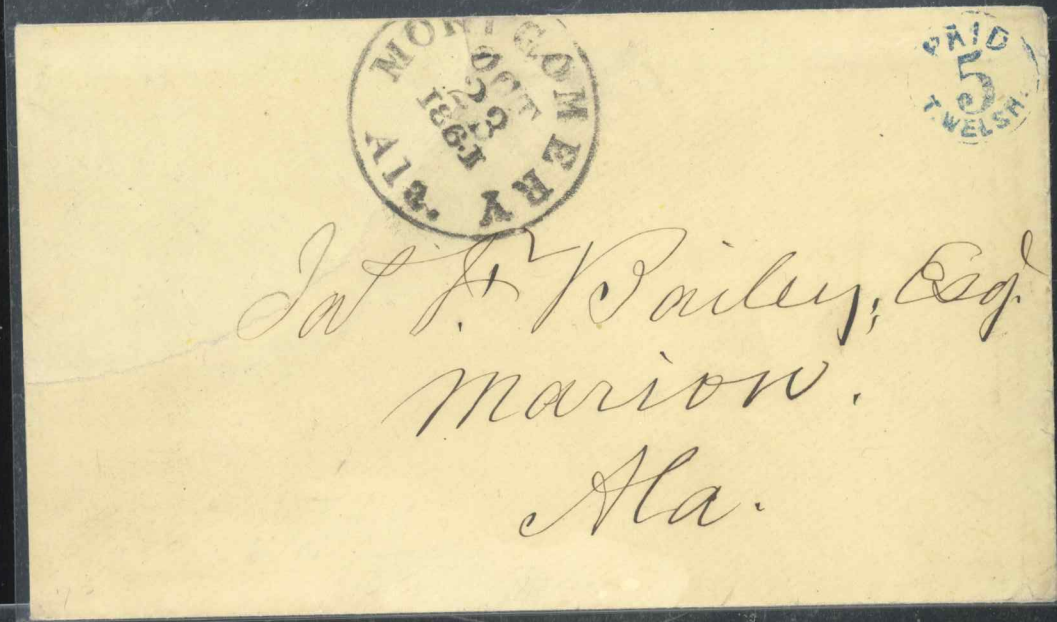 MONTGOMERY Ala.
OCT
23
1861
PAID
5
T. WELSH.
Jas F. Bailey, Esq.
Marion.
Ala.